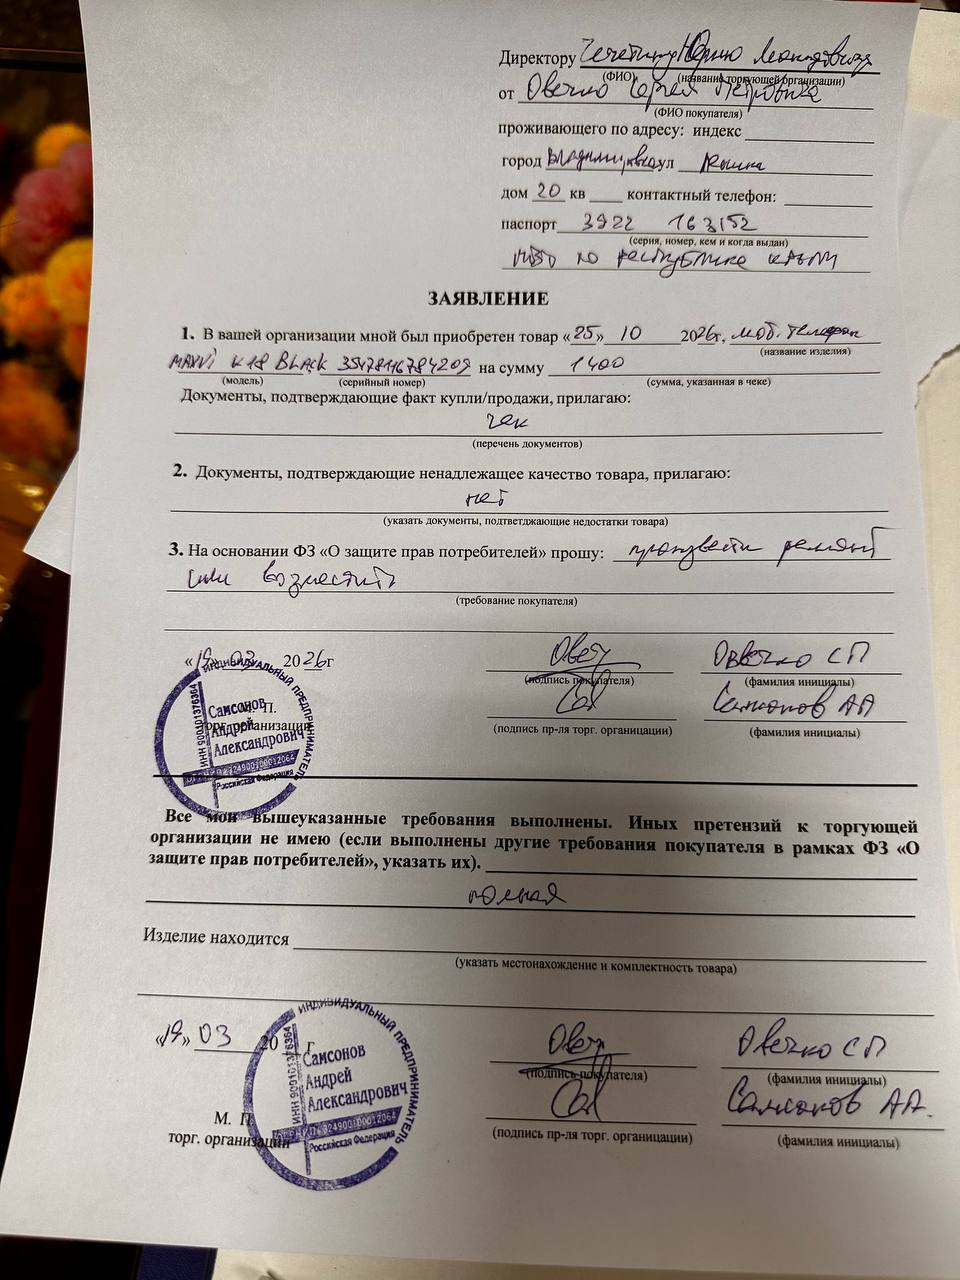 Директору Чечетину Юрию Леонидовичу
(ФИО) (название торгующей организации)
от Овечко Сергея Петровича
(ФИО покупателя)
проживающего по адресу: индекс
город Владимировка ул
дом 20 кв контактный телефон:
паспорт 3922 163152
(серия, номер, кем и когда выдан)
МВД по республике Крым
ЗАЯВЛЕНИЕ
1. В вашей организации мной был приобретен товар «25» 10 2026г, моб. телефон
(название изделия)
MAXVI K18 BLACK на сумму 1400
(модель) (серийный номер) (сумма, указанная в чеке)
Документы, подтверждающие факт купли/продажи, прилагаю:
чек
(перечень документов)
2. Документы, подтверждающие ненадлежащее качество товара, прилагаю:
нет
(указать документы, подтветджающие недостатки товара)
3. На основании ФЗ «О защите прав потребителей» прошу: произвести ремонт
или возместить
(требование покупателя)
«19» 03 2026г Овечко СП
(подпись покупателя) (фамилия инициалы)
Самсонов АА
М. П.
торг. организации (подпись пр-ля торг. органицации) (фамилия инициалы)
ИНДИВИДУАЛЬНЫЙ ПРЕДПРИНИМАТЕЛЬ
ИНН 900101376364
Самсонов
Андрей
Александрович
Российская Федерация
Все мои вышеуказанные требования выполнены. Иных претензий к торгующей
организации не имею (если выполнены другие требования покупателя в рамках ФЗ «О
защите прав потребителей», указать их).
полная
Изделие находится
(указать местонахождение и комплектность товара)
«19» 03 20 г Овечко СП
(подпись покупателя) (фамилия инициалы)
Самсонов АА.
М. П.
торг. организации (подпись пр-ля торг. органицации) (фамилия инициалы)
ИНДИВИДУАЛЬНЫЙ ПРЕДПРИНИМАТЕЛЬ
ИНН 900101376364
Самсонов
Андрей
Александрович
Российская Федерация